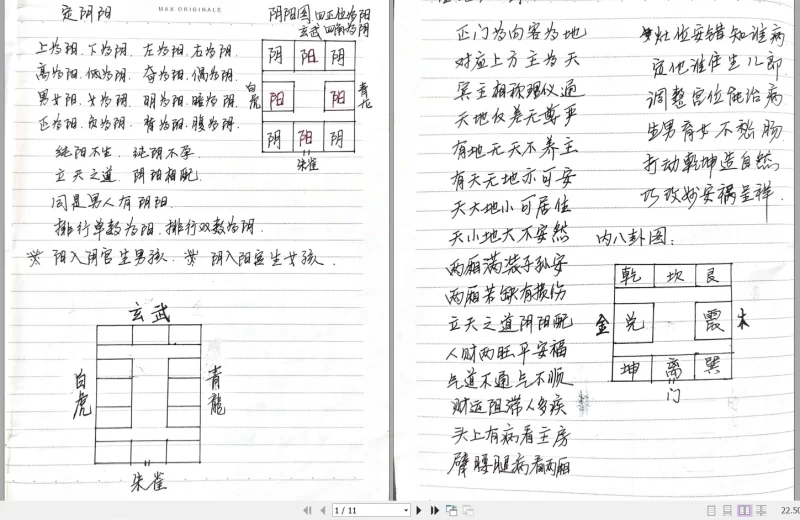 定阴阳
MAX ORIGINALS
阴阳图 四正位为阳
玄武 四角为阴
上为阳.下为阴. 左为阳.右为阴.
高为阳.低为阴. 奇为阳.偶为阴.
男为阳.女为阴. 明为阳.暗为阴.
正为阳.反为阴. 背为阳.腹为阴.
纯阳不生. 纯阴不孕.
立天之道. 阴阳相配.
同是男人有阴阳.
排行单数为阳.排行双数为阴.
※ 阳入阴宫生男孩. ※ 阴入阳宫生女孩.
阴 阳 阴
白虎 阳 阳 青龙
阴 阳 阴
朱雀
玄武
白虎
青龍
朱雀
正门为向客为地
对应上方主为天
宾主相称理仪通
天地仪差无尊严
有地无天不养主
有天无地亦可安
天大地小可居住
天小地大不安然
两厢满装子孙安
两厢若缺有损伤
立天之道阴阳配
人财两旺平安福
气道不通气不顺
财运阻滞人多疾
头上有病看主房
臂腰腿病看两厢
灶位安错知谁病
定他谁住生儿郎
调整宫位能治病
生男育女不愁肠
打动乾坤造自然
巧改妙安祸呈祥
内八卦图:
乾 坎 艮
金 兑 震 木
坤 离 巽
门
1 / 11
22.50